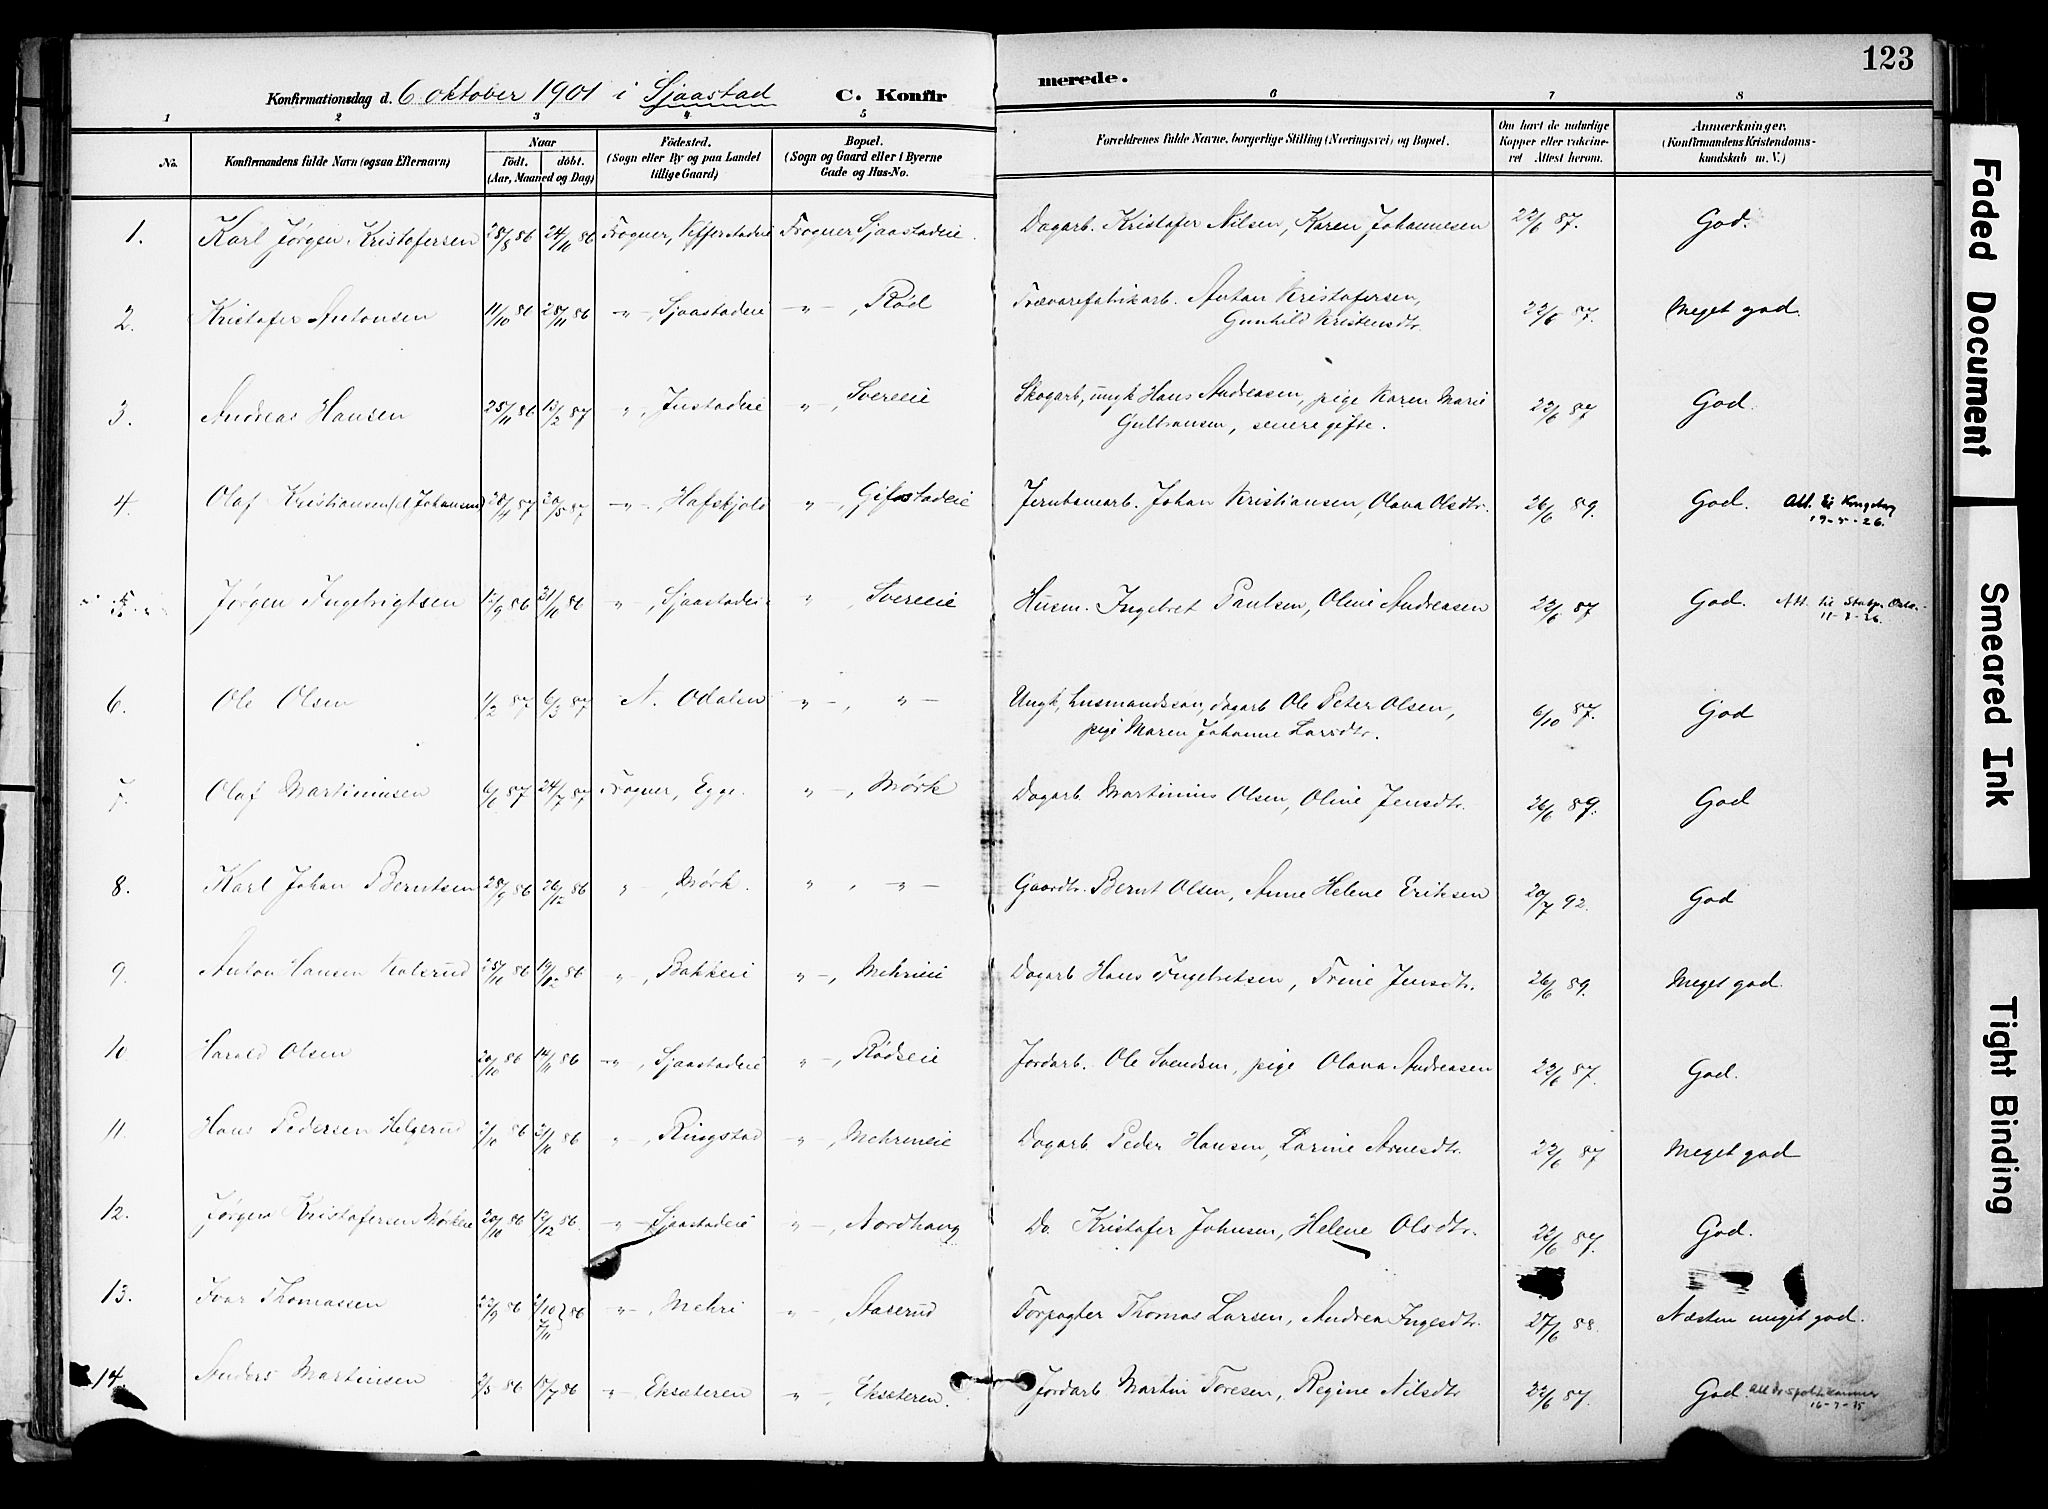 123
Konfirmationsdag d. 6 oktober 1901 i Sjaastad C. Konfirmerede.
1 2 3 4 5 6 7 8
No. Konfirmandens fulde Navn (ogsaa Efternavn) Naar födt. döbt. (Aar, Maaned og Dag) Födested. (Sogn eller By og paa Landet tillige Gaard) Bopæl. (Sogn og Gaard eller i Byerne Gade og Hus-No. Forældrenes fulde Navne, borgerlige Stilling (Næringsvei) og Bopæl. Om havt de naturlige Kopper eller vakcineret Attest herom. Anmærkninger. (Konfirmandens Kristendomskundskab m. V.)
1. Karl Jørgen Kristofersen 28/8 86 24/10 86 Frogner, Vefferstadeie Frogner, Sjaastadeie. Dagarb. Kristofer Nilsen, Karen Johannesen 22/6 87. God.
2. Kristofer Antonsen 11/10 86 28/11 86 -"-, Sjaastadeie -"-, Rød Trævarefabrikarb. Anton Kristofersen,
Gunhild Kristensdtr. 22/6 87. Meget god.
3. Andreas Hansen 25/11 86 13/2 87 "-, Justadeie "-, Svereeie Skogarb, ungk Hans Andreasen, pige Karen Marie
Gulbransen, senere gifte. 22/6 87 God.
4. Olaf Kristiansen (el Johansen) 28/4 87 20/5 87 -"-, Hafskjold "-, Gifstadeie Jernbanearb. Johan Kristiansen, Olava Olsdtr. 26/6 89. God. Att. til Kongsberg
19-5-26.
5 Jørgen Ingebrigtsen 12/9 86 31/10 86 "-, Sjaastadeie ", Svereeie Husm. Ingebret Paulsen, Oline Andreasen 22/6 87 God. Att. til
11-3-26.
6. Ole Olsen 1/2 87 6/3 87 N. Odalen "-, "- Ungk, husmandssøn, dagarb Ole Peter Olsen,
pige Maren Johanne Larsdtr. 6/10 87. God
7. Olaf Martiniusen 6/6 87 24/7 87 Frogner, Egge. "-, Mørk Dagarb. Martinius Olsen, Oline Jensdtr. 26/6 89. God
8. Karl Johan Berntsen 28/9 86 26/12 86 "-, Mørk. ", -"- Gaardbr. Bernt Olsen, Anne Helene Eriksen 20/7 92. God
9. Anton Hansen Kolsrud 25/10 86 19/12 86 "-, Bakkeie "-, Mehrieie Dagarb Hans Ingebretsen, Trine Jensdtr. 26/6 89. Meget god.
10 Harald Olsen 20/10 86 14/11 86 -"-, Sjaastadeie "-, Rødseie Jordarb. Ole Svendsen, pige Olava Andreasen 22/6 87. God.
11. Hans Pedersen Helgerud 2/10 86 31/10 86 "-, Ringstad "-, Mehrieie Dagarb Peder Hansen, Larine Arnesdtr. 22/6 87 Meget god
12. Jørgen Kristofersen Mørkeie 20/10 86 12/12 86. -"- Sjaastadeie "-, Nordhaug Do. Kristofer Johnsen, Helene Olsdtr. 22/6 87. God.
13. Ivar Thomassen 22/9 86 31/10 7/11 86 "-, Mehri "-, Aaserud Forpagter Thomas Larsen, Andrea Ingesdtr. 27/6 88. Næsten meget god.
14. Anders Martinsen 2/5 86 18/7 86 "-, Eksæteren "-, Eksæteren. Jordarb Martin Toresen, Regine Nilsdtr 22/6 87. God. Att
16-7-15
Faded Document
Smeared Ink
Tight Binding